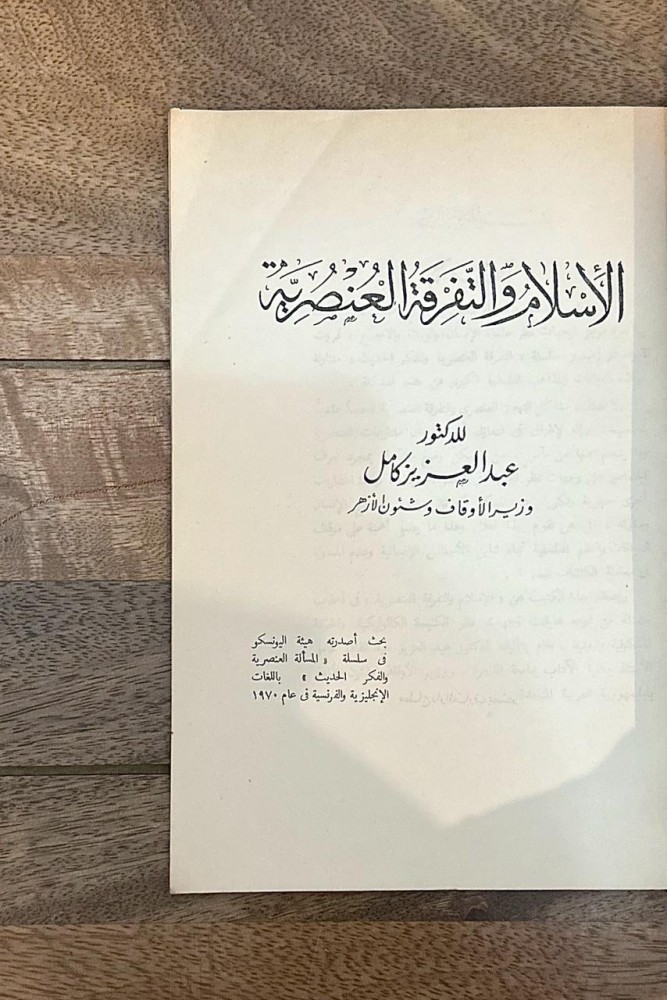 الأسْلامُ وَالتَّفرِقَةُ العُنْصُرِيَّة
للدكتور
عبد العزيز كامل
وزير الأوقاف وشئون الأزهر
بحث أصدرته هيئة اليونسكو
فى سلسلة « المسألة العنصرية
والفكر الحديث » باللغات
الإنجليزية والفرنسية فى عام ١٩٧٠